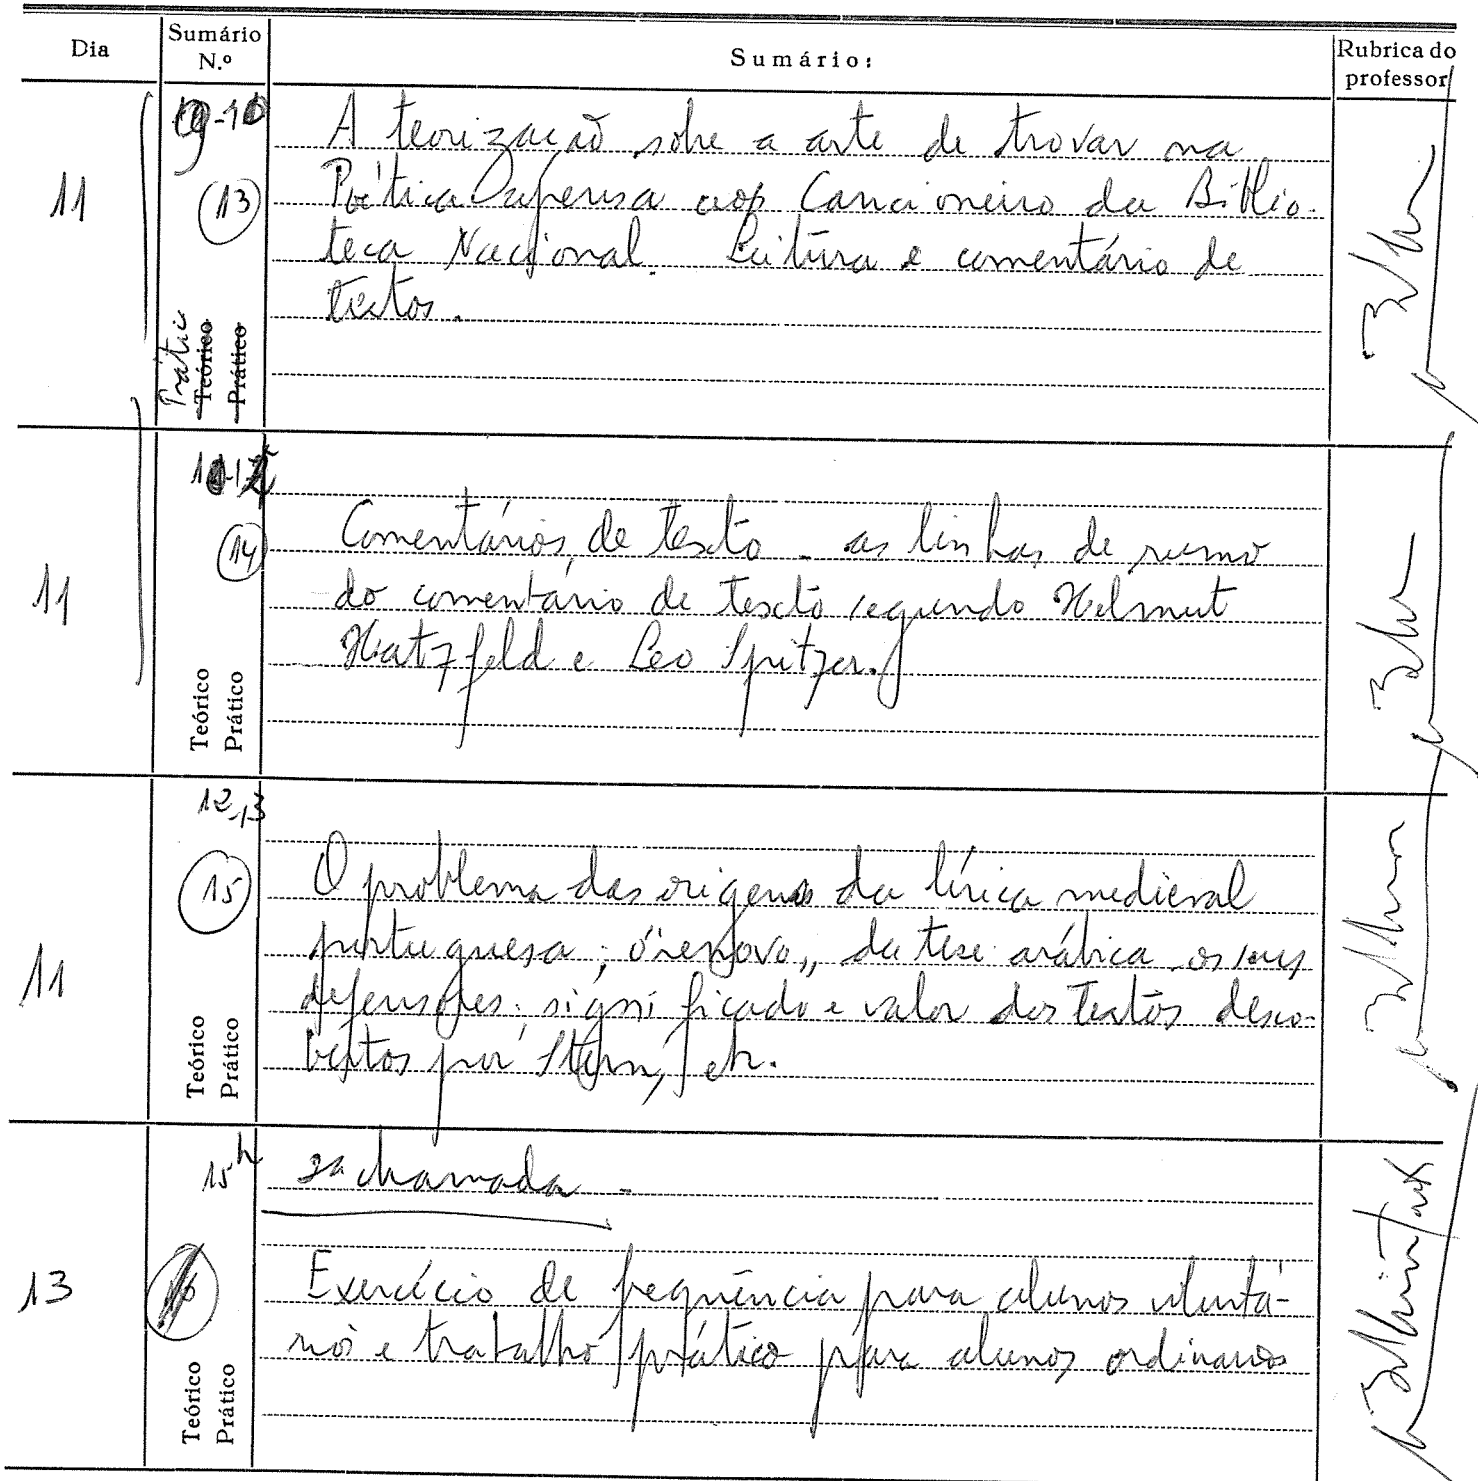 Dia
Sumário N.º
Sumário:
Rubrica do professor
11
9-10
13
Prátic
Teórico
Prático
A teorização sobre a arte de trovar na
Poética apensa ao Cancioneiro da Biblio-
teca Nacional. Leitura e comentário de
textos.
11
14
Teórico
Prático
Comentários de texto - as linhas de rumo
do comentário de texto segundo Helmut
Hatzfeld e Leo Spitzer.
11
12-13
15
Teórico
Prático
O problema das origens da lírica medieval
portuguesa; o "renovo" da tese arábica os seus
defensores; significado e valor dos textos desco-
bertos por Stern, etc.
13
15h
Teórico
Prático
2a chamada -
Exercício de frequência para alunos voluntá-
rios e trabalho prático para alunos ordinarios